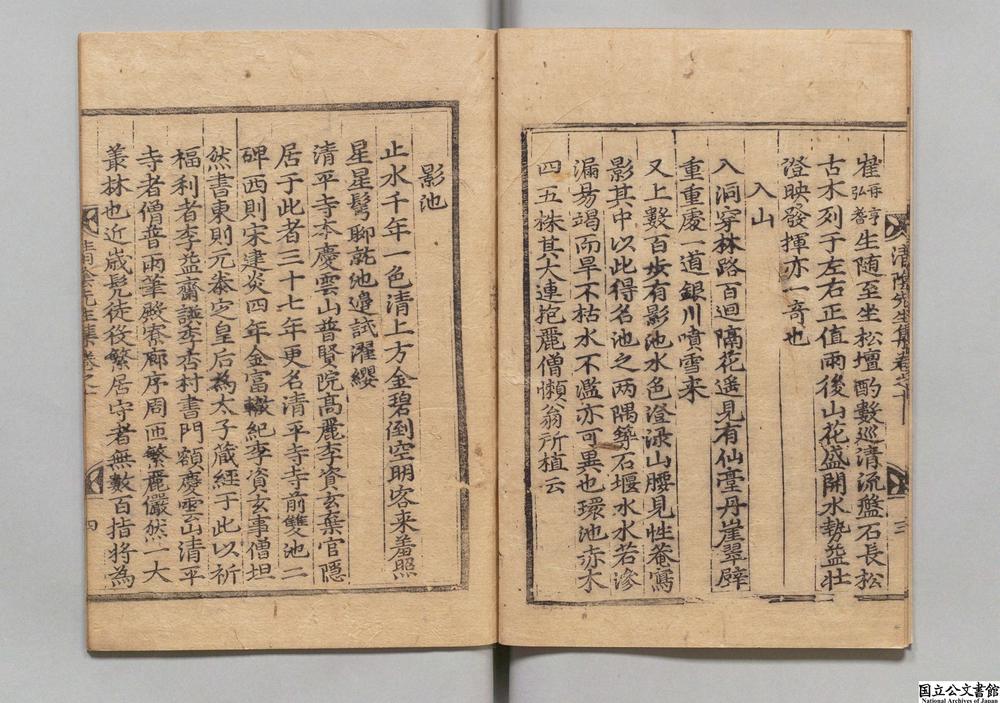 崔再亨弘耆生随至坐松壇酌數巡清流盤石長松
古木列于左右正值雨後山花盛開水勢益壮
澄映發揮亦一奇也
入山
入洞穿林路百迴隔花遥見有仙臺丹崖翠壁
重重處一道銀川噴雪来
又上數百步有影池水色澄渌山腰見性菴寫
影其中以此得名池之两隅築石堰水水若渗
漏易竭而旱不枯水不濫亦可異也環池赤木
四五株其大連抱麗僧懶翁所植云
清陰先生集卷之十
三
影池
止水千年一色清上方金碧倒空明客来羞照
星星鬢聊就池邉試濯纓
清平寺本慶雲山普賢院髙麗李資玄棄官隱
居于此者三十七年更名清平寺寺前雙池二
碑西則宋建炎四年金富轍紀李資玄事僧坦
然書東則元泰定皇后為太子藏經于此以祈
福利者李益齋譔李杏村書門額慶雲山清平
寺者僧普雨筆殿寮廊序周匝繁麗儼然一大
叢林也近歳髡徒役繁居守者無數百指将為
清陰先生集卷之十
四
国立公文書館
National Archives of Japan